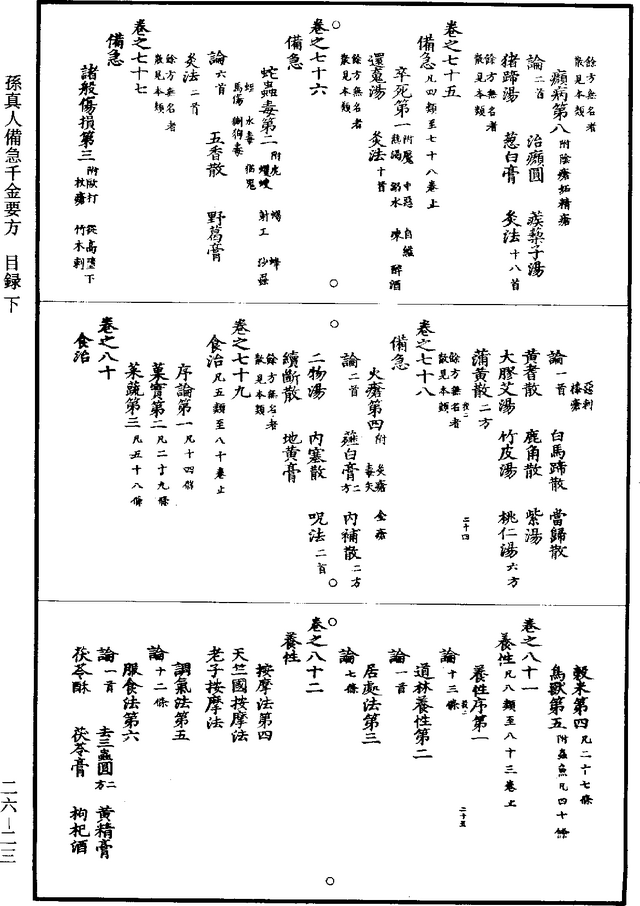 餘方無名者
散見本類
㿗病第八 附陰瘡妬精瘡
論二首 治㿗圓 蒺藜子湯
豬蹄湯 葱白膏 灸法十八首
餘方無名者
散見本類
卷之七十五
備急 凡四類至七十八卷止
卒死第一 附魘 中惡 自縊 熱暍 溺水 凍 醉酒
還䰟湯 灸法十首
餘方無名者
散見本類
卷之七十六
備急
蛇蟲毒第二 附虎 蝎 蜂 蠼螋 射工 沙蝨
蛭 水毒 猫鬼
馬傷 猘狗毒
論六首 五香散 野葛膏
灸法二首
餘方無名者
散見本類
卷之七十七
備急
諸般傷損第三 附㱔打 從高墮下 杖瘡 竹木刺
惡刺
㯶瘡
論一首 白馬蹄散 當歸散
黃耆散 鹿角散 紫湯
大膠艾湯 竹皮湯 桃仁湯六方
蒲黃散二方
二十四
餘方無名者
散見本類
卷之七十八
備急
火瘡第四 附 灸瘡 金瘡 毒矢
論二首 薤白膏二方 內補散二方
二物湯 內塞散 呪法二首
續斷散 地黃膏
餘方無名者
散見本類
卷之七十九
食治 凡五類至八十卷止
序論第一 凡十四條
菓實第二 凡二十九條
菜蔬第三 凡五十八條
卷之八十
食治
穀米第四 凡二十七條
鳥獸第五 附蟲魚凡四十條
卷之八十一
養性 凡八類至八十三卷止
養性序第一
論十三條
二十五
道林養性第二
論一首
居處法第三
論七條
卷之八十二
養性
按摩法第四
天竺國按摩法
老子按摩法
調氣法第五
論十二條
服食法第六
論一首 去三蟲圓二方 黃精膏
茯苓酥 茯苓膏 枸杞酒
孫真人備急千金要方 目録下
二六－二三